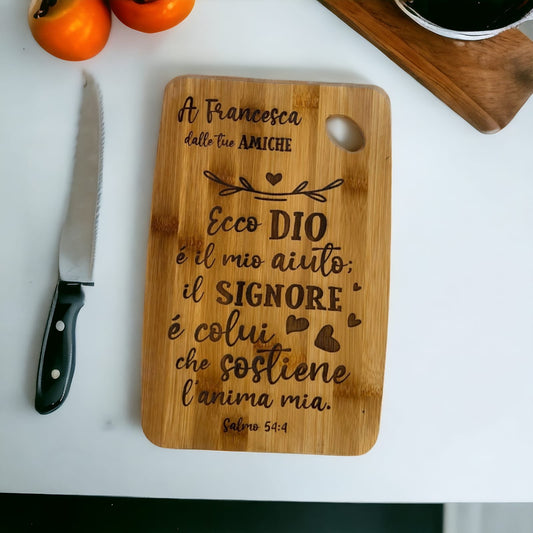 A Francesca
dalle tue AMICHE
Ecco DIO
é il mio aiuto;
il SIGNORE
é colui
che sostiene
l'anima mia.
Salmo 54:4